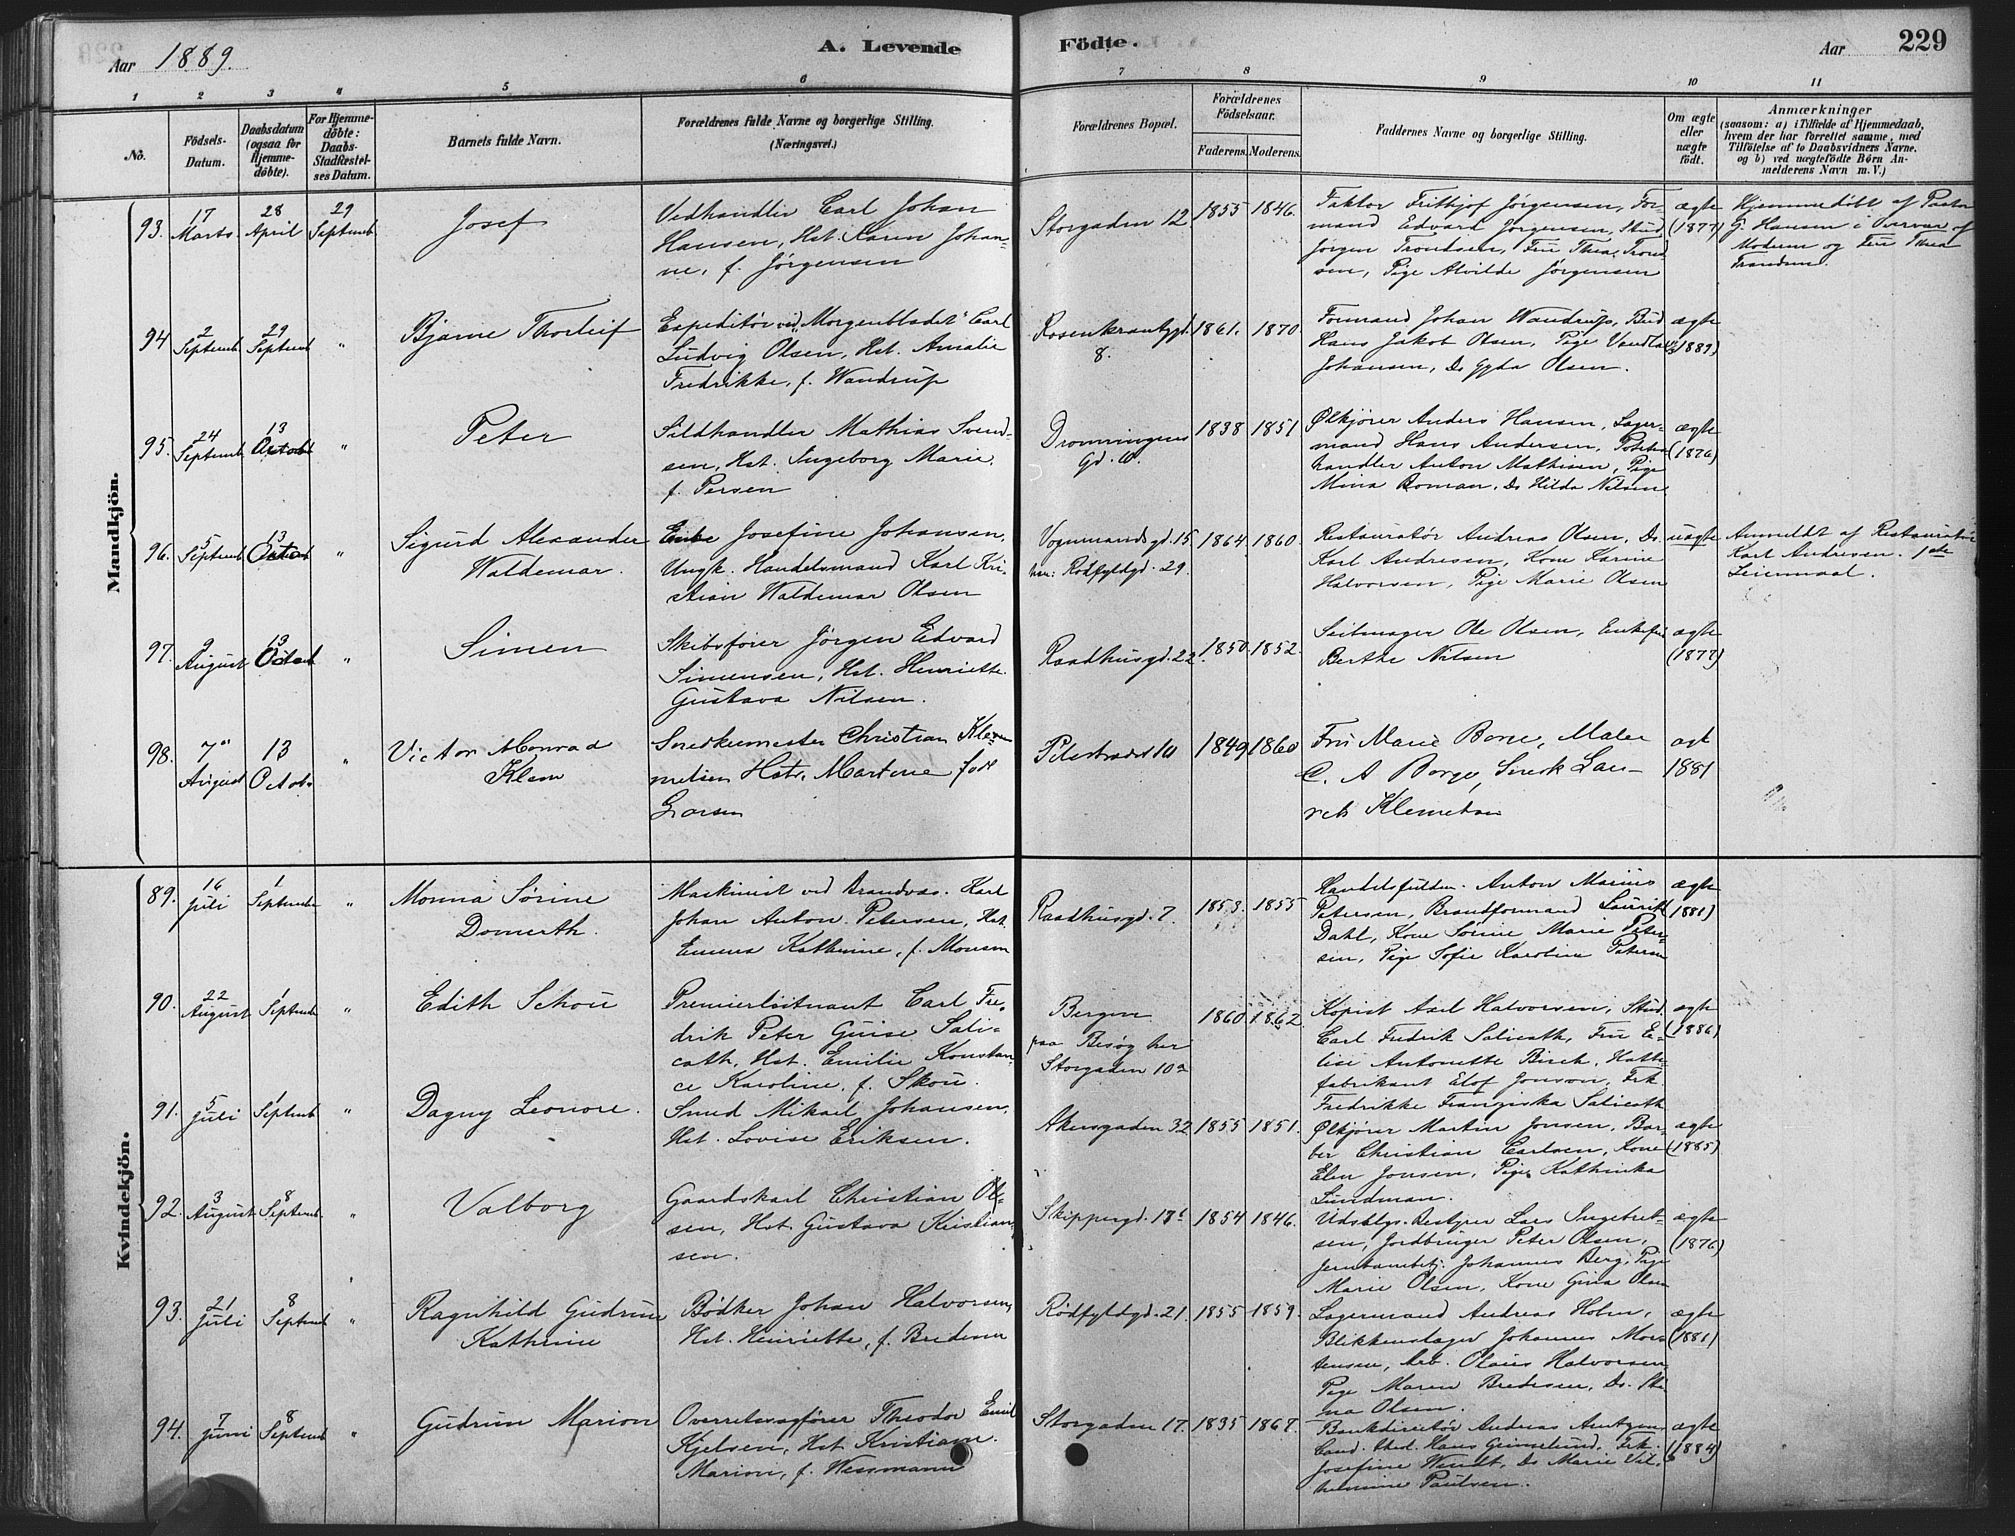 Aar 1889.
A. Levende
Födte.
Aar
229
1 2 3 4 5 6 7 8 9 10 11
No.
Födsels-Datum.
Daabsdatum (ogsaa for Hjemmedöbte).
For Hjemmedöbte: Daabs-Stadfæstelses Datum.
Barnets fulde Navn.
Forældrenes fulde Navne og borgerlige Stilling. (Næringsvei.)
Forældrenes Bopæl.
Forældrenes Födselsaar.
Faderens. Moderens.
Faddernes Navne og borgerlige Stilling.
Om ægte eller uægte födt.
Anmærkninger
(saasom: a) i Tilfælde af Hjemmedaab, hvem der har forrettet samme, med Tilföielse af to Daabsvidners Navne, og b) ved uægtefödte Börn Anmelderens Navn m. V.)
Mandkjön.
93. 17 Marts 28 April 29 Septemb Josef
Vedhandler Carl Johan
Hansen, Hst. Karen Johan-
ne, f. Jørgensen
Storgaden 12 1855 1846.
Faktor Frithjof Jørgensen, For-
mand Edvard Jørgensen, Stud
Jørgen Trondsen, Fru Thea Trond
sen, Pige Alvilde Jørgensen
ægte (1877)
Hjemmedöbt af Pastor
G. Hansen i Overvær af
Moderen og Fru Thea
Trondsen.
94 2 Septemb 29 Septemb " Bjarne Thorleif
Expeditör ved "Morgenbladet" Carl
Ludvig Olsen, Hst. Amalie
Fredrikke, f. Wandrup
Rosenkrantzgd. 8. 1861. 1870.
Formand Johan Wandrup, Bud
Hans Jakob Olsen, Pige
Johansen, Do Gyda Olsen.
ægte (1889)
95. 24 Septemb 13 Octob " Peter
Sildhandler Mathias Svend-
sen, Hst. Ingeborg Marie,
f. Persen
Dronningens Gd. 1838 1851
Ølkjører Anders Hansen, Lager-
mand Hans Andersen,
handler Anton Mathisen, Pige
Mina Boman, Do Hilda Nilsen
ægte (1876)
96. 5 Septemb 13 Octob " Sigurd Alexander
Waldemar.
Enke Josefine Johansen,
Ungk. Handelsmand Karl Kri-
stian Waldemar Olsen
Vognmandsgd. 15 1864 1860.
han: Rødfyldgd. 29.
Restauratør Andreas Olsen, Do
Karl Andresen, Kone Karine
Halvorsen, Pige Marie Olsen
uægte
Anmeldt af Restauratør
Karl Andresen. 1ste
Leiermaal.
97. 9 August 13 Octob " Simen
Skibsfører Jørgen Edvard
Simensen, Hst. Henriette
Gustava Nilsen.
Raadhusgd. 22. 1850. 1852.
Seilmager Ole Olsen, Enkefru
Berthe Nilsen
ægte (1877)
98. 7 August 13 Octob. " Victor Monrad
Klem
Snedkermester Christian Kle-
metsen Hstr. Martine født
Larsen
Pilestrædet 1849 1860
Fru Marie Borge, Maler
C. A Borge, Snedk Lau-
rets Klemetsen
ægt 1881
Kvindekjön.
89. 16 Juli 1 Septembr " Monna Sørine
Domerth.
Maskinist ved Brandvæs. Karl
Johan Anton Petersen, Hst.
Emma Kathrine, f. Monsen
Raadhusgd. 7. 1853. 1855
Handelsfuldm. Anton Marius
Petersen, Brandformand Lauritz
Dahl, Kone Sørine Marie Peter-
sen, Pige Sofie Karoline Petersen
ægte (1881)
90. 22 August 1 Septemb " Edith Schou
Premierlöitnant Carl Fre-
drik Peter Guise Sali-
cath, Hst. Emilie Konstan-
ce Karoline, f. Skou.
Bergen
paa Besøg her
Storgaden 10a
1860 1862
Kopist Axel Halvorsen, Stud.
Carl Fredrik Salicath, Fru E-
lise Antonette Birch, Hatte-
fabrikant Elof Jonson, Frk.
Fredrikke Franziska Salicath
ægte (1886)
91. 5 Juli 1 Septemb " Dagny Leonore.
Smed Mikael Johansen,
Hst. Lovise Eriksen.
Akersgaden 32 1855 1851.
Ølkjører Martin Jonsen, Bar-
ber Christian Carlsen, Kone
Elen Jonsen, Pige Kathinka
Lundman.
ægte (1885)
92. 3 August 8 Septemb. " Valborg
Gaardskarl Christian Ol-
sen, Hst. Gustava Kristian
sen.
Skippergd. 1854 1846.
Udsalgs.bestyrer Lars Ingebret-
sen, Jordbruger Peter Olsen,
Jernbanebetj. Johannes Berg, Pige
Marie Olsen, Kone Gina Olsen
ægte (1876)
93. 21 Juli 8 Septemb " Ragnhild Gudrun
Kathrine
Bødker Johan Halvorsen,
Hst. Henriette, f. Bredesen
Rødfyldgd. 21. 1855 1859.
Lagermand Andreas Holm,
Blikkenslager Johannes Mor-
tensen, Arb. Olaus Halvorsen
Pige Maren Bredesen, Do.
Olsen.
ægte (1881)
94. 7 Juni 8 Septemb " Gudrun Marion
Overretssagfører Theodor Emil
Kjelsen, Hst. Kristiane
Marion, f. Wessmann
Storgaden 17. 1835 1867.
Bankdirektør Andreas Arntzen
Cand. theol. Hans Grimelund, Frk.
Josefine Wendt, Do Marie Vil-
helmine Paulsen.
ægte (1884)